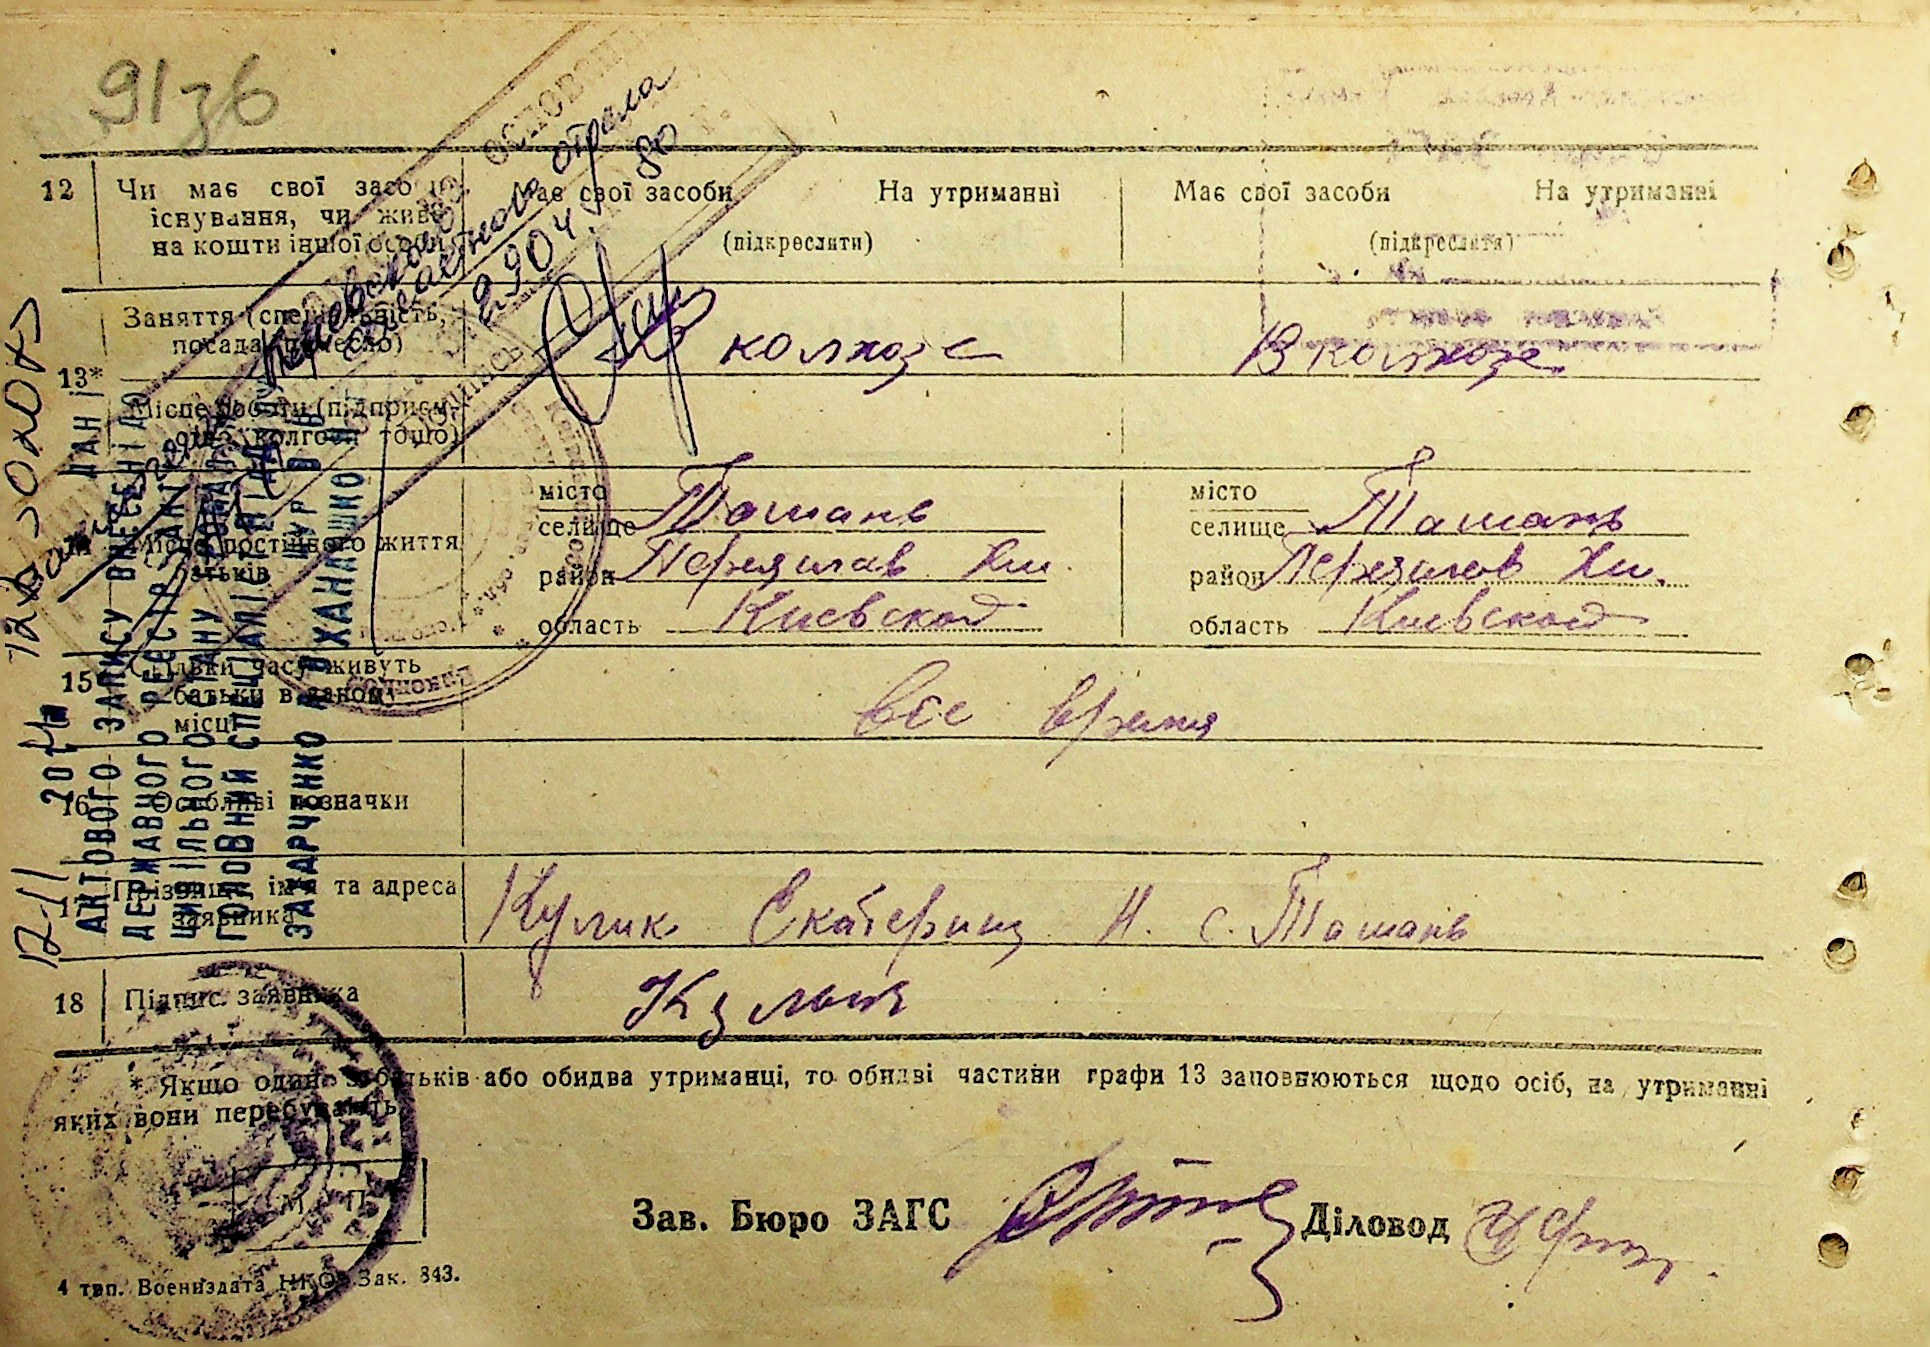 91зб
12 Чи має свої засоби Має свої засоби На утриманні Має свої засоби На утриманні
існування, чи живе
на кошти іншої особи (підкреслити) (підкреслити)
Заняття (спеціальність,
посада, ремесло) В колхозе В колхозе
13*
Місце роботи (підприєм-
ство, колгосп тощо)
місто місто
селище Ташань селище Ташань
Місце постійного життя
батьків район Переяслав Хм. район Переяслав Хм.
область Киевской область Киевской
15 Скільки часу живуть
батьки в даному все время
місці
16 Особливі позначки
17 Прізвище, ім'я та адреса Кулик Екатерина Н. с. Ташань
заявника
18 Підпис заявника Кулык
* Якщо один з батьків або обидва утриманці, то обидві частини графи 13 заповнюються щодо осіб, на утриманні
яких вони перебувають.
М. П.
Зав. Бюро ЗАГС Діловод
4 тип. Воениздата НКО Зак. 843.
ДАНІ
АКТОВОГО ЗАПИСУ ВНЕСЕНІ ДО
ДЕРЖАВНОГО РЕЄСТРУ
ЦИВІЛЬНОГО СТАНУ
ГОЛОВНИЙ СПЕЦІАЛІСТ
ЗАХАРЧЕНКО